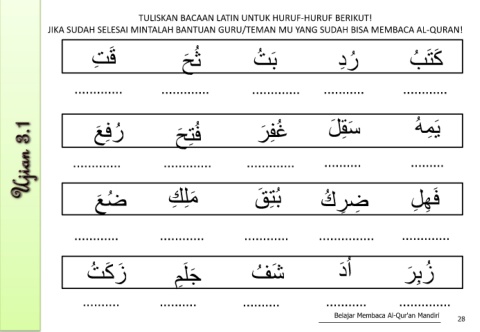 TULISKAN BACAAN LATIN UNTUK HURUF-HURUF BERIKUT!
JIKA SUDAH SELESAI MINTALAH BANTUAN GURU/TEMAN MU YANG SUDAH BISA MEMBACA AL-QURAN!
Ujian 3.1
كَتَبُ رُدِ بَتُ ثُحَ قَتِ
............. ............. ............. ............. .............
يَمِهُ سَقِلَ غُفِرَ فُتِحَ رُفِعَ
............. ............. ............. ............. .............
فَهِلِ ضِرِكُ بُتِقَ مَلِكِ ضُعَ
............. ............. ............. ............. .............
زُبِرَ اُدَ شَفُ جَلَمِ زَكَتُ
............. ............. ............. ............. .............
Belajar Membaca Al-Qur'an Mandiri
28